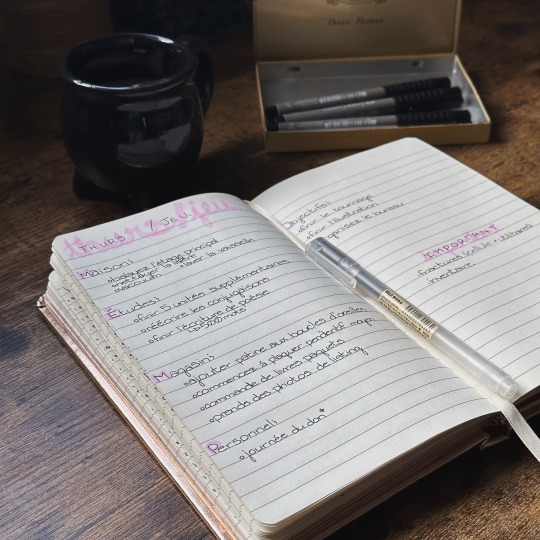 THURS / JEU.
Maison:
balayez l'étage principal
nettoyer la litière
vaccuum
laver la vaisselle
Études:
finir 5 unités supplémentaires
réécrire les conjugaisons
finir l'écriture de poésie
Magasin:
ajouter patine aux boucles d'oreilles
commencez à plaquer pendentif
commande de livres paquets
prends des photos de listing
Personnel:
journée du don*
Objectifs:
finir le
finir l'illustration
organisez le bureau
IMPORTANT
inventaire